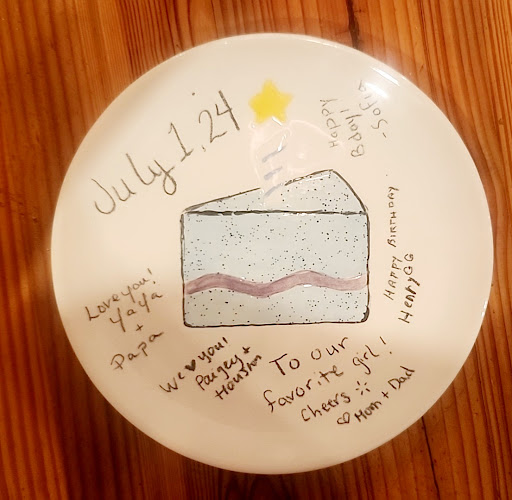 July 1, 24
Happy
Bday!
-Sofia
HAPPY BIRTHDAY
HenryGG
Love you!
YaYa
+
Papa
We ♥ you!
Paigey +
Houston
To our
favorite girl!
Cheers
♡ Mom + Dad